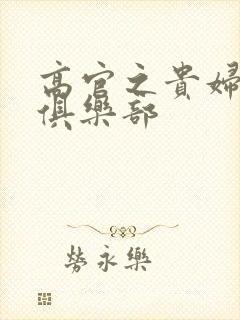 高官之貴婦
俱樂部
勞永樂